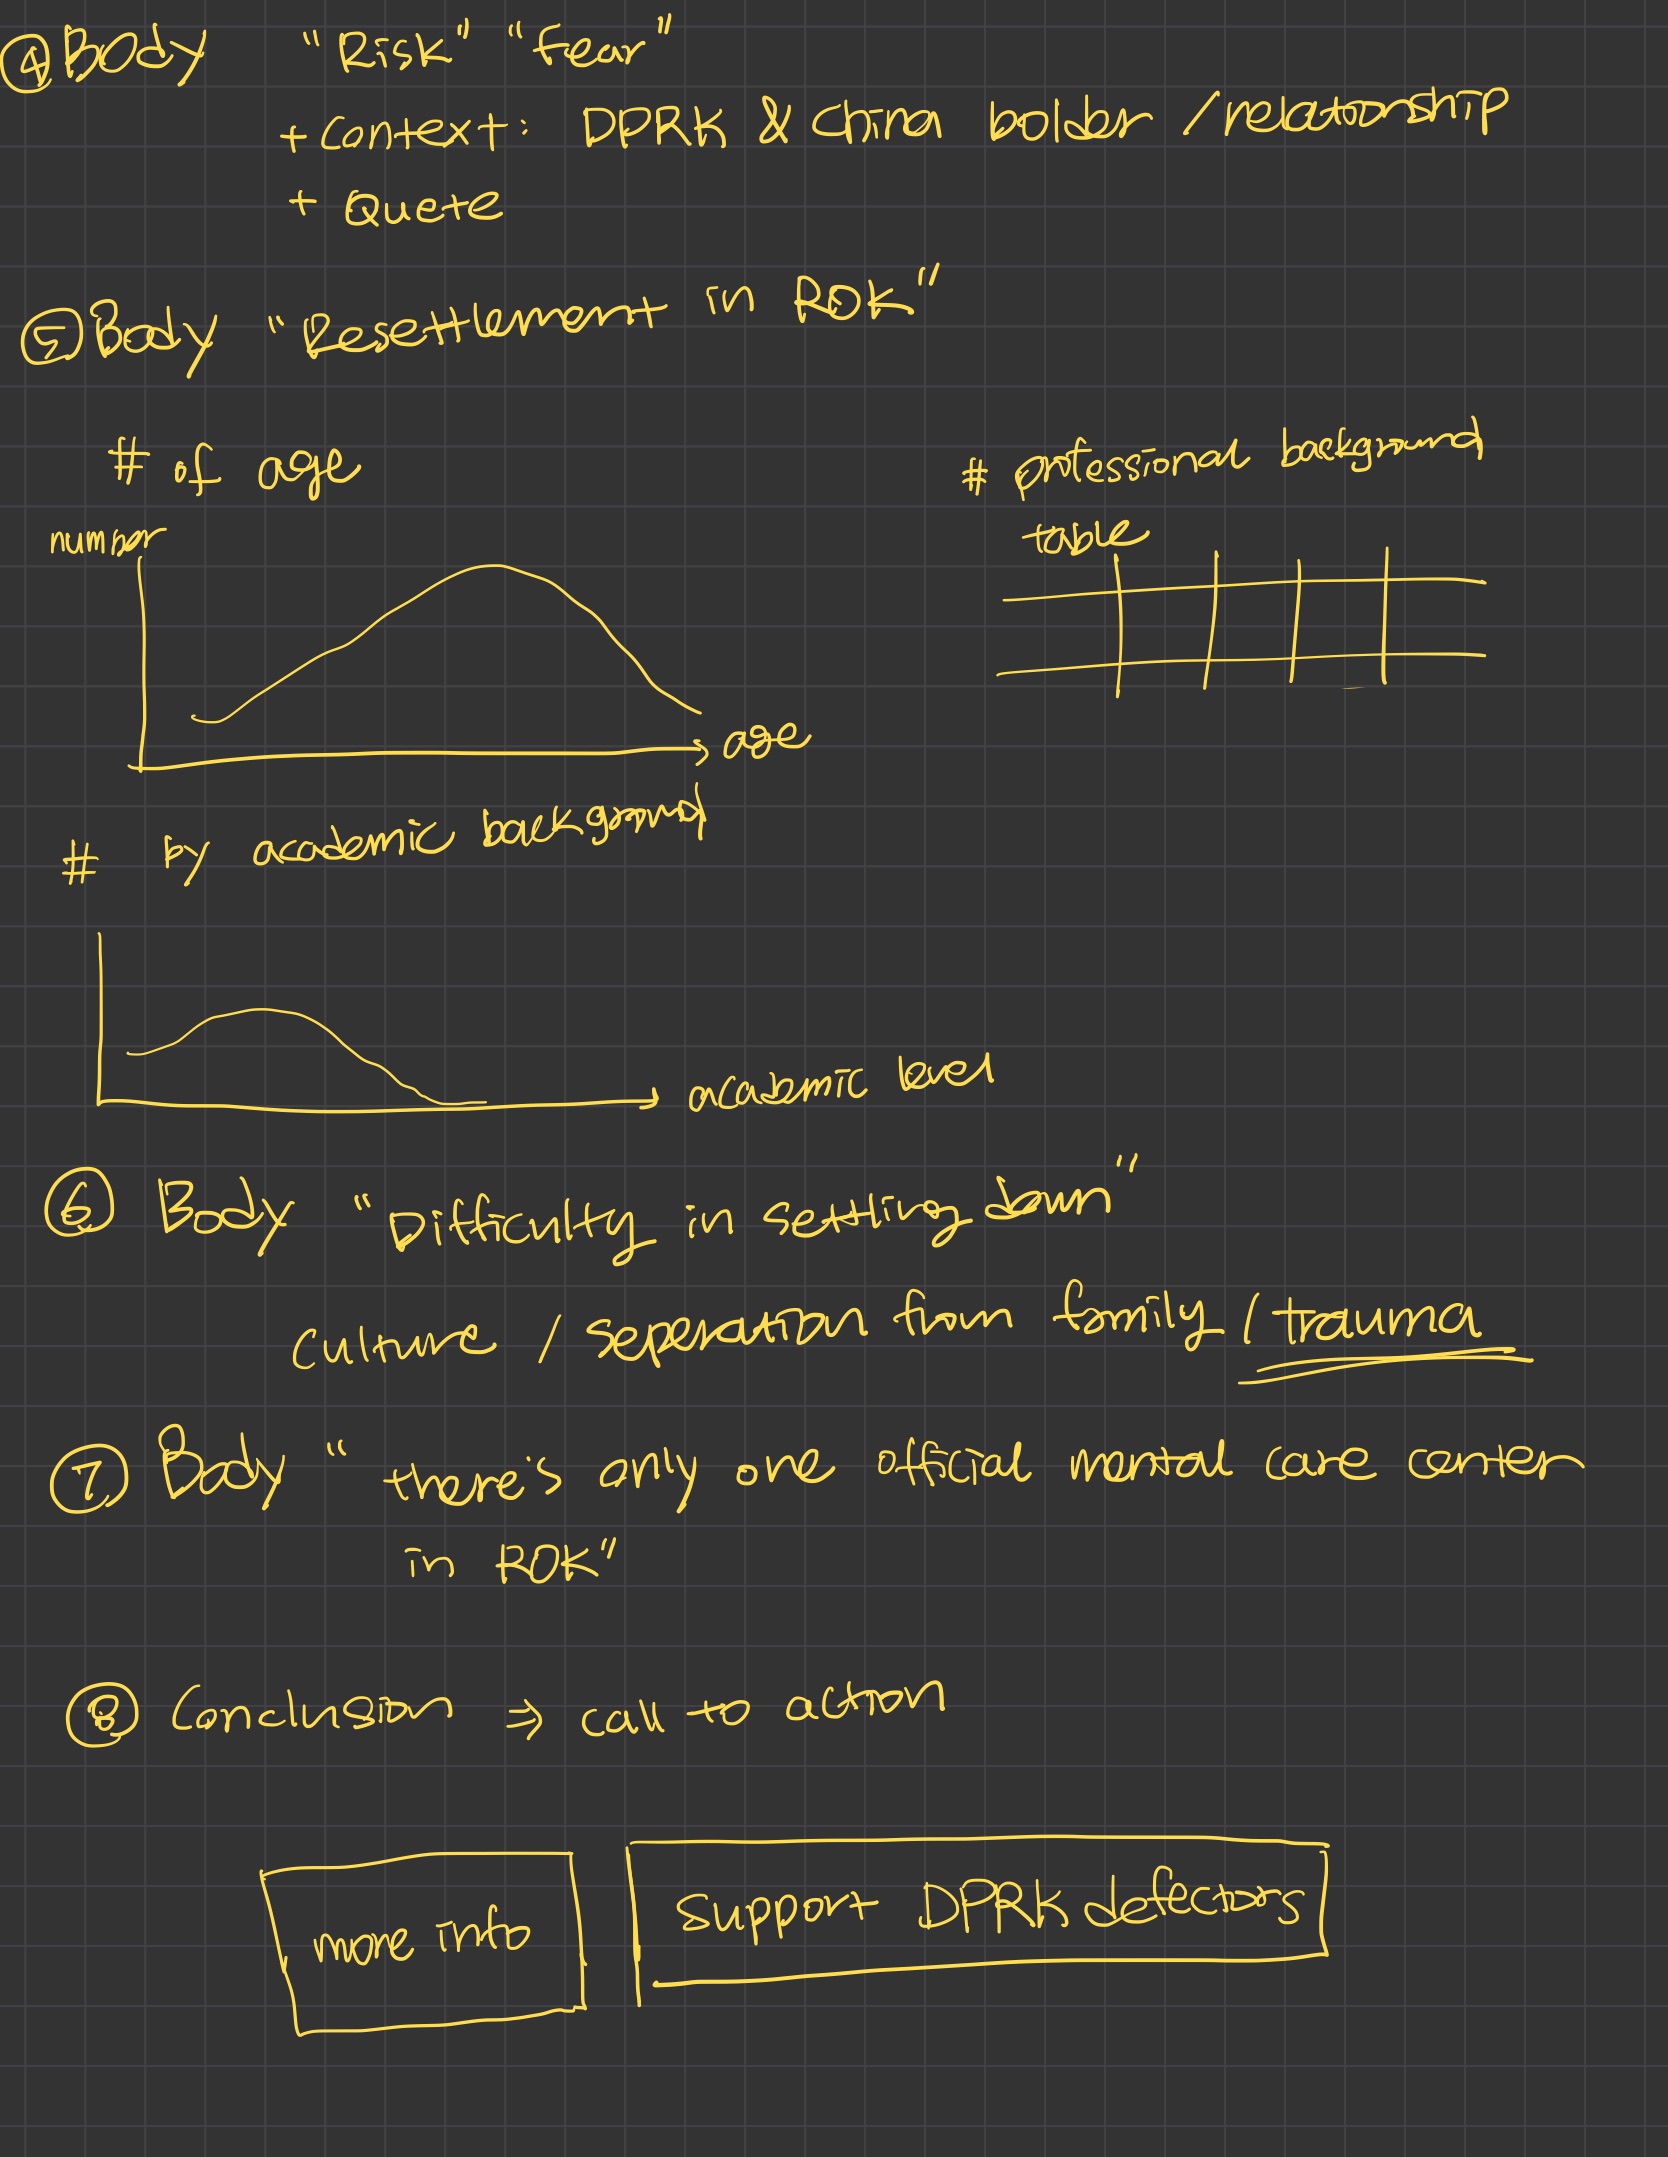 ④ Body "Risk" "fear"
+ Context: DPRK & China bolder / relationship
+ Quete
⑤ Body "Resettlement in ROK"
# of age
# professional background
number
table
age
# by academic background
academic level
⑥ Body "Difficulty in settling down"
culture / seperation from family / trauma
⑦ Body "there's only one official mental care center
in ROK"
⑧ Conclusion ⇒ call to action
more info
support DPRK defectors